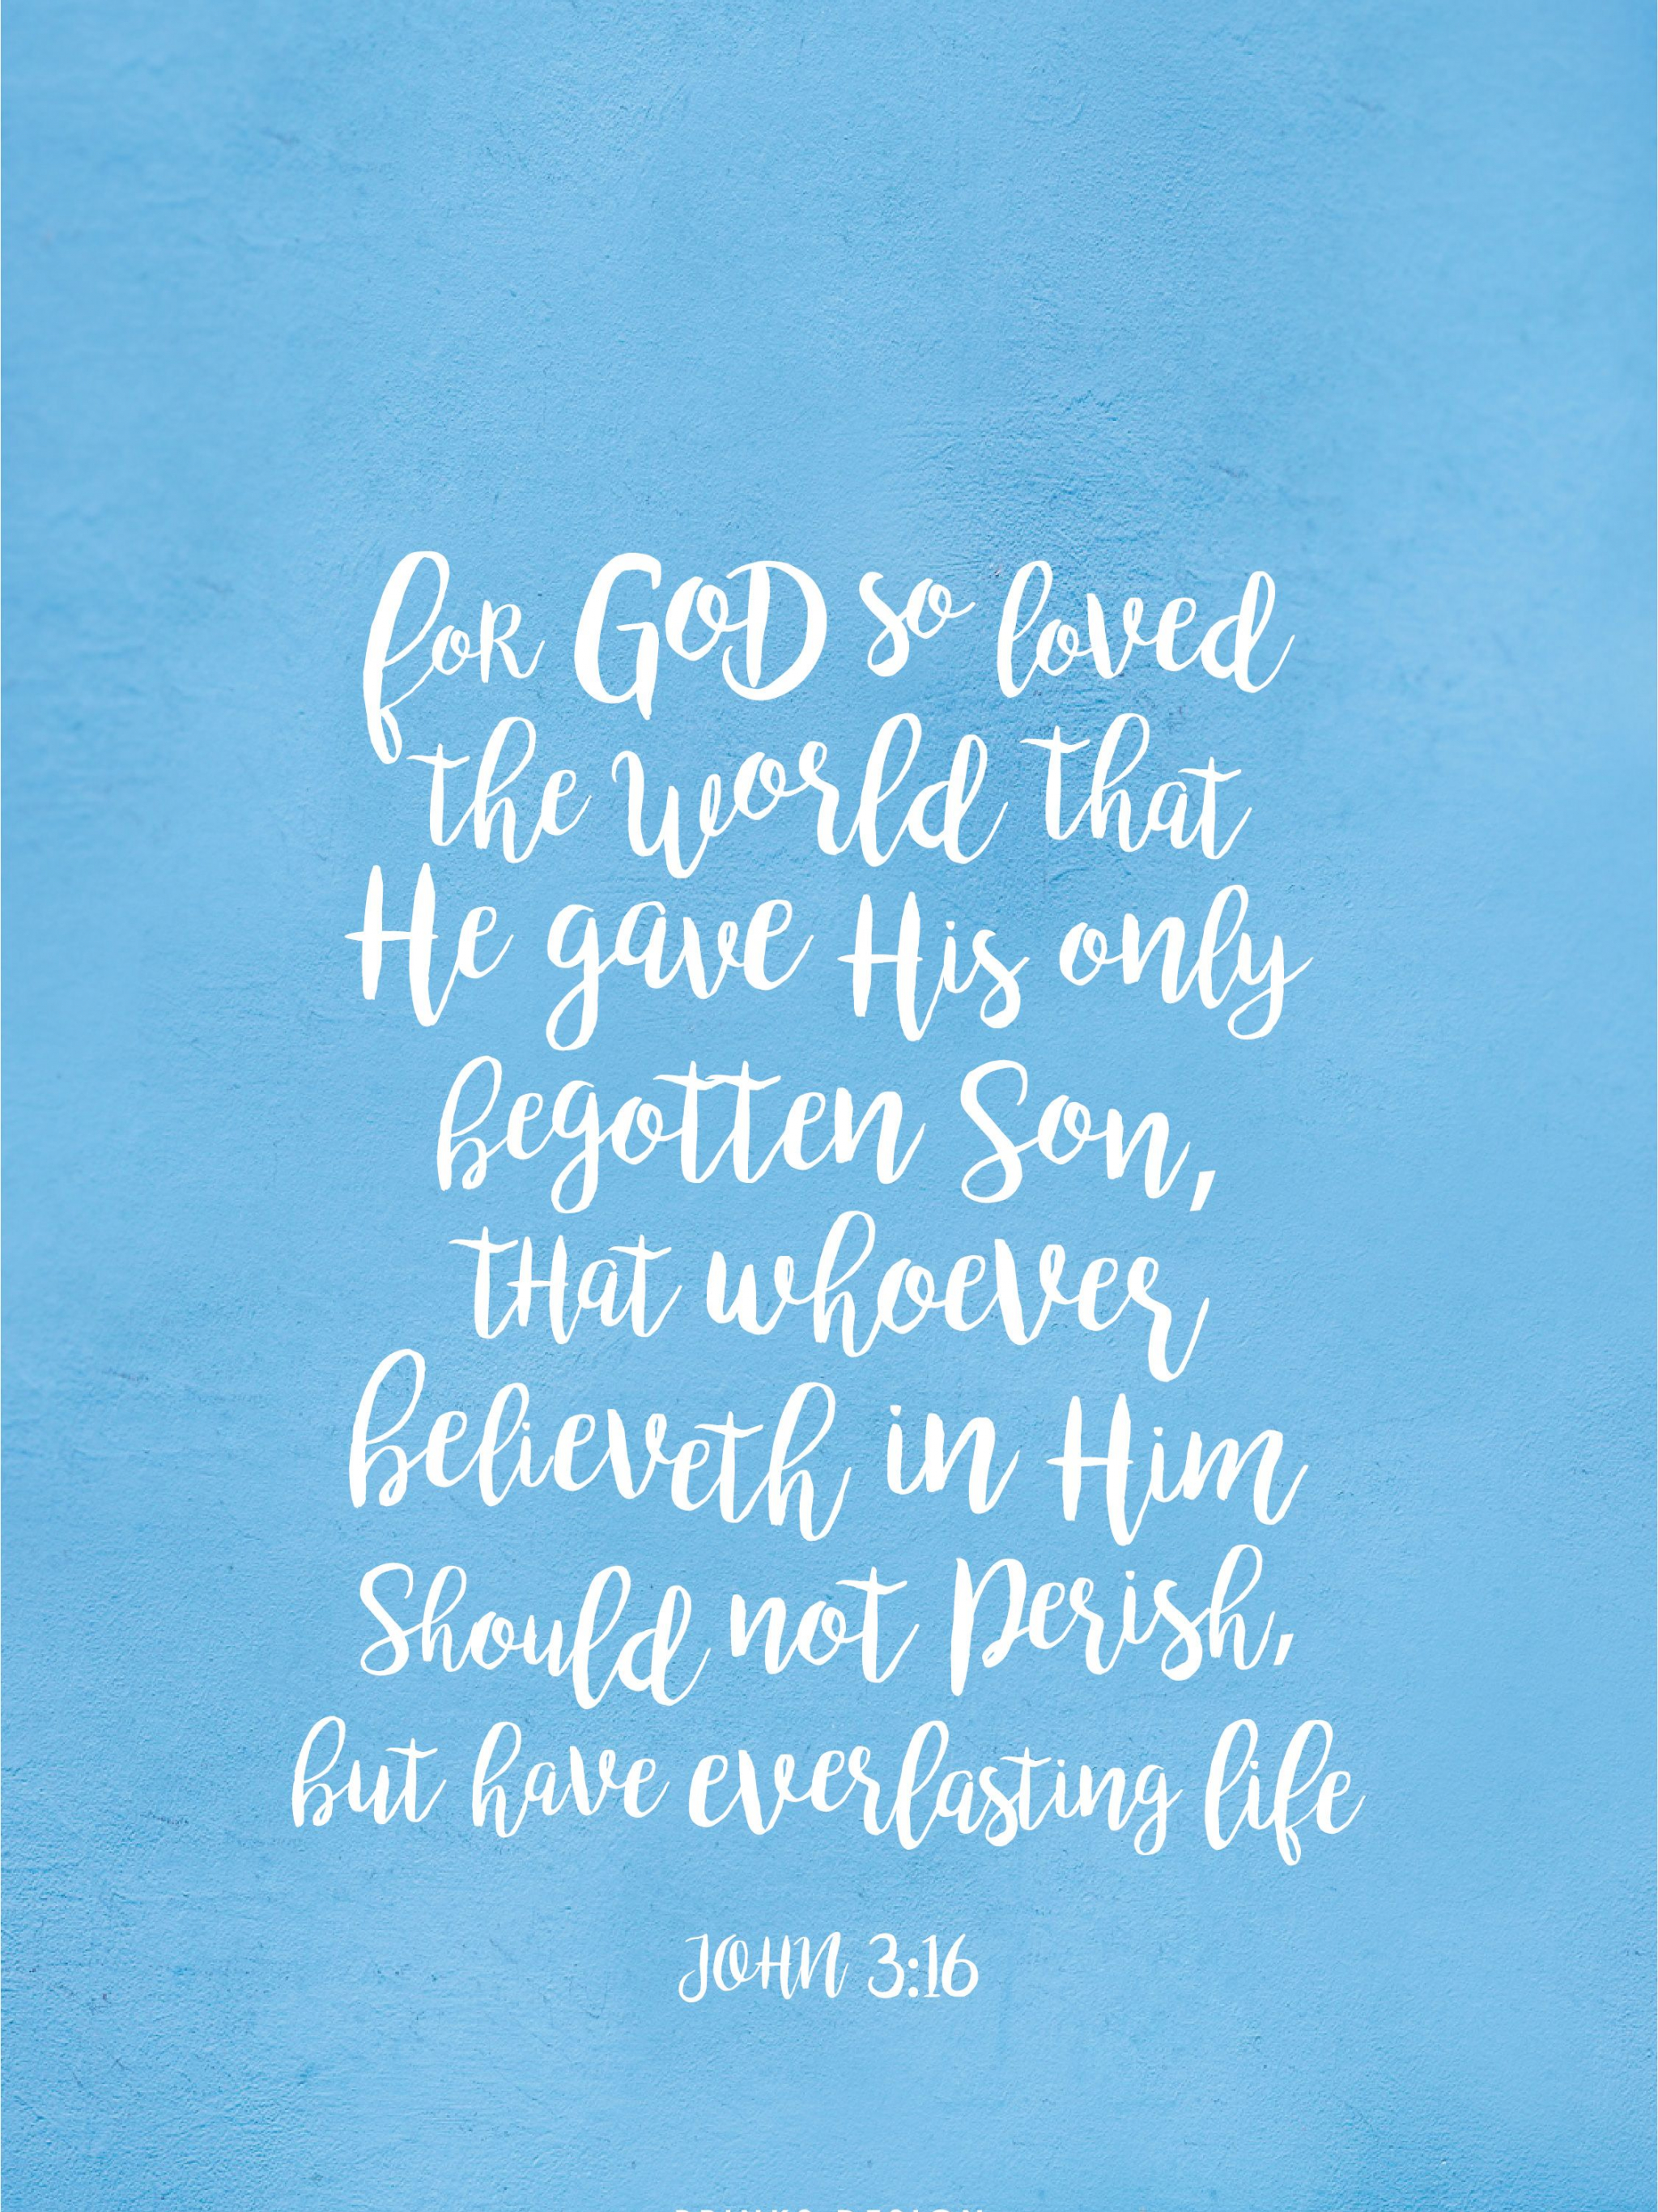 for GOD so loved
the world that
He gave His only
begotten Son,
tHat whoever
believeth in Him
Should not Perish,
but have everlasting life
JOHN 3:16